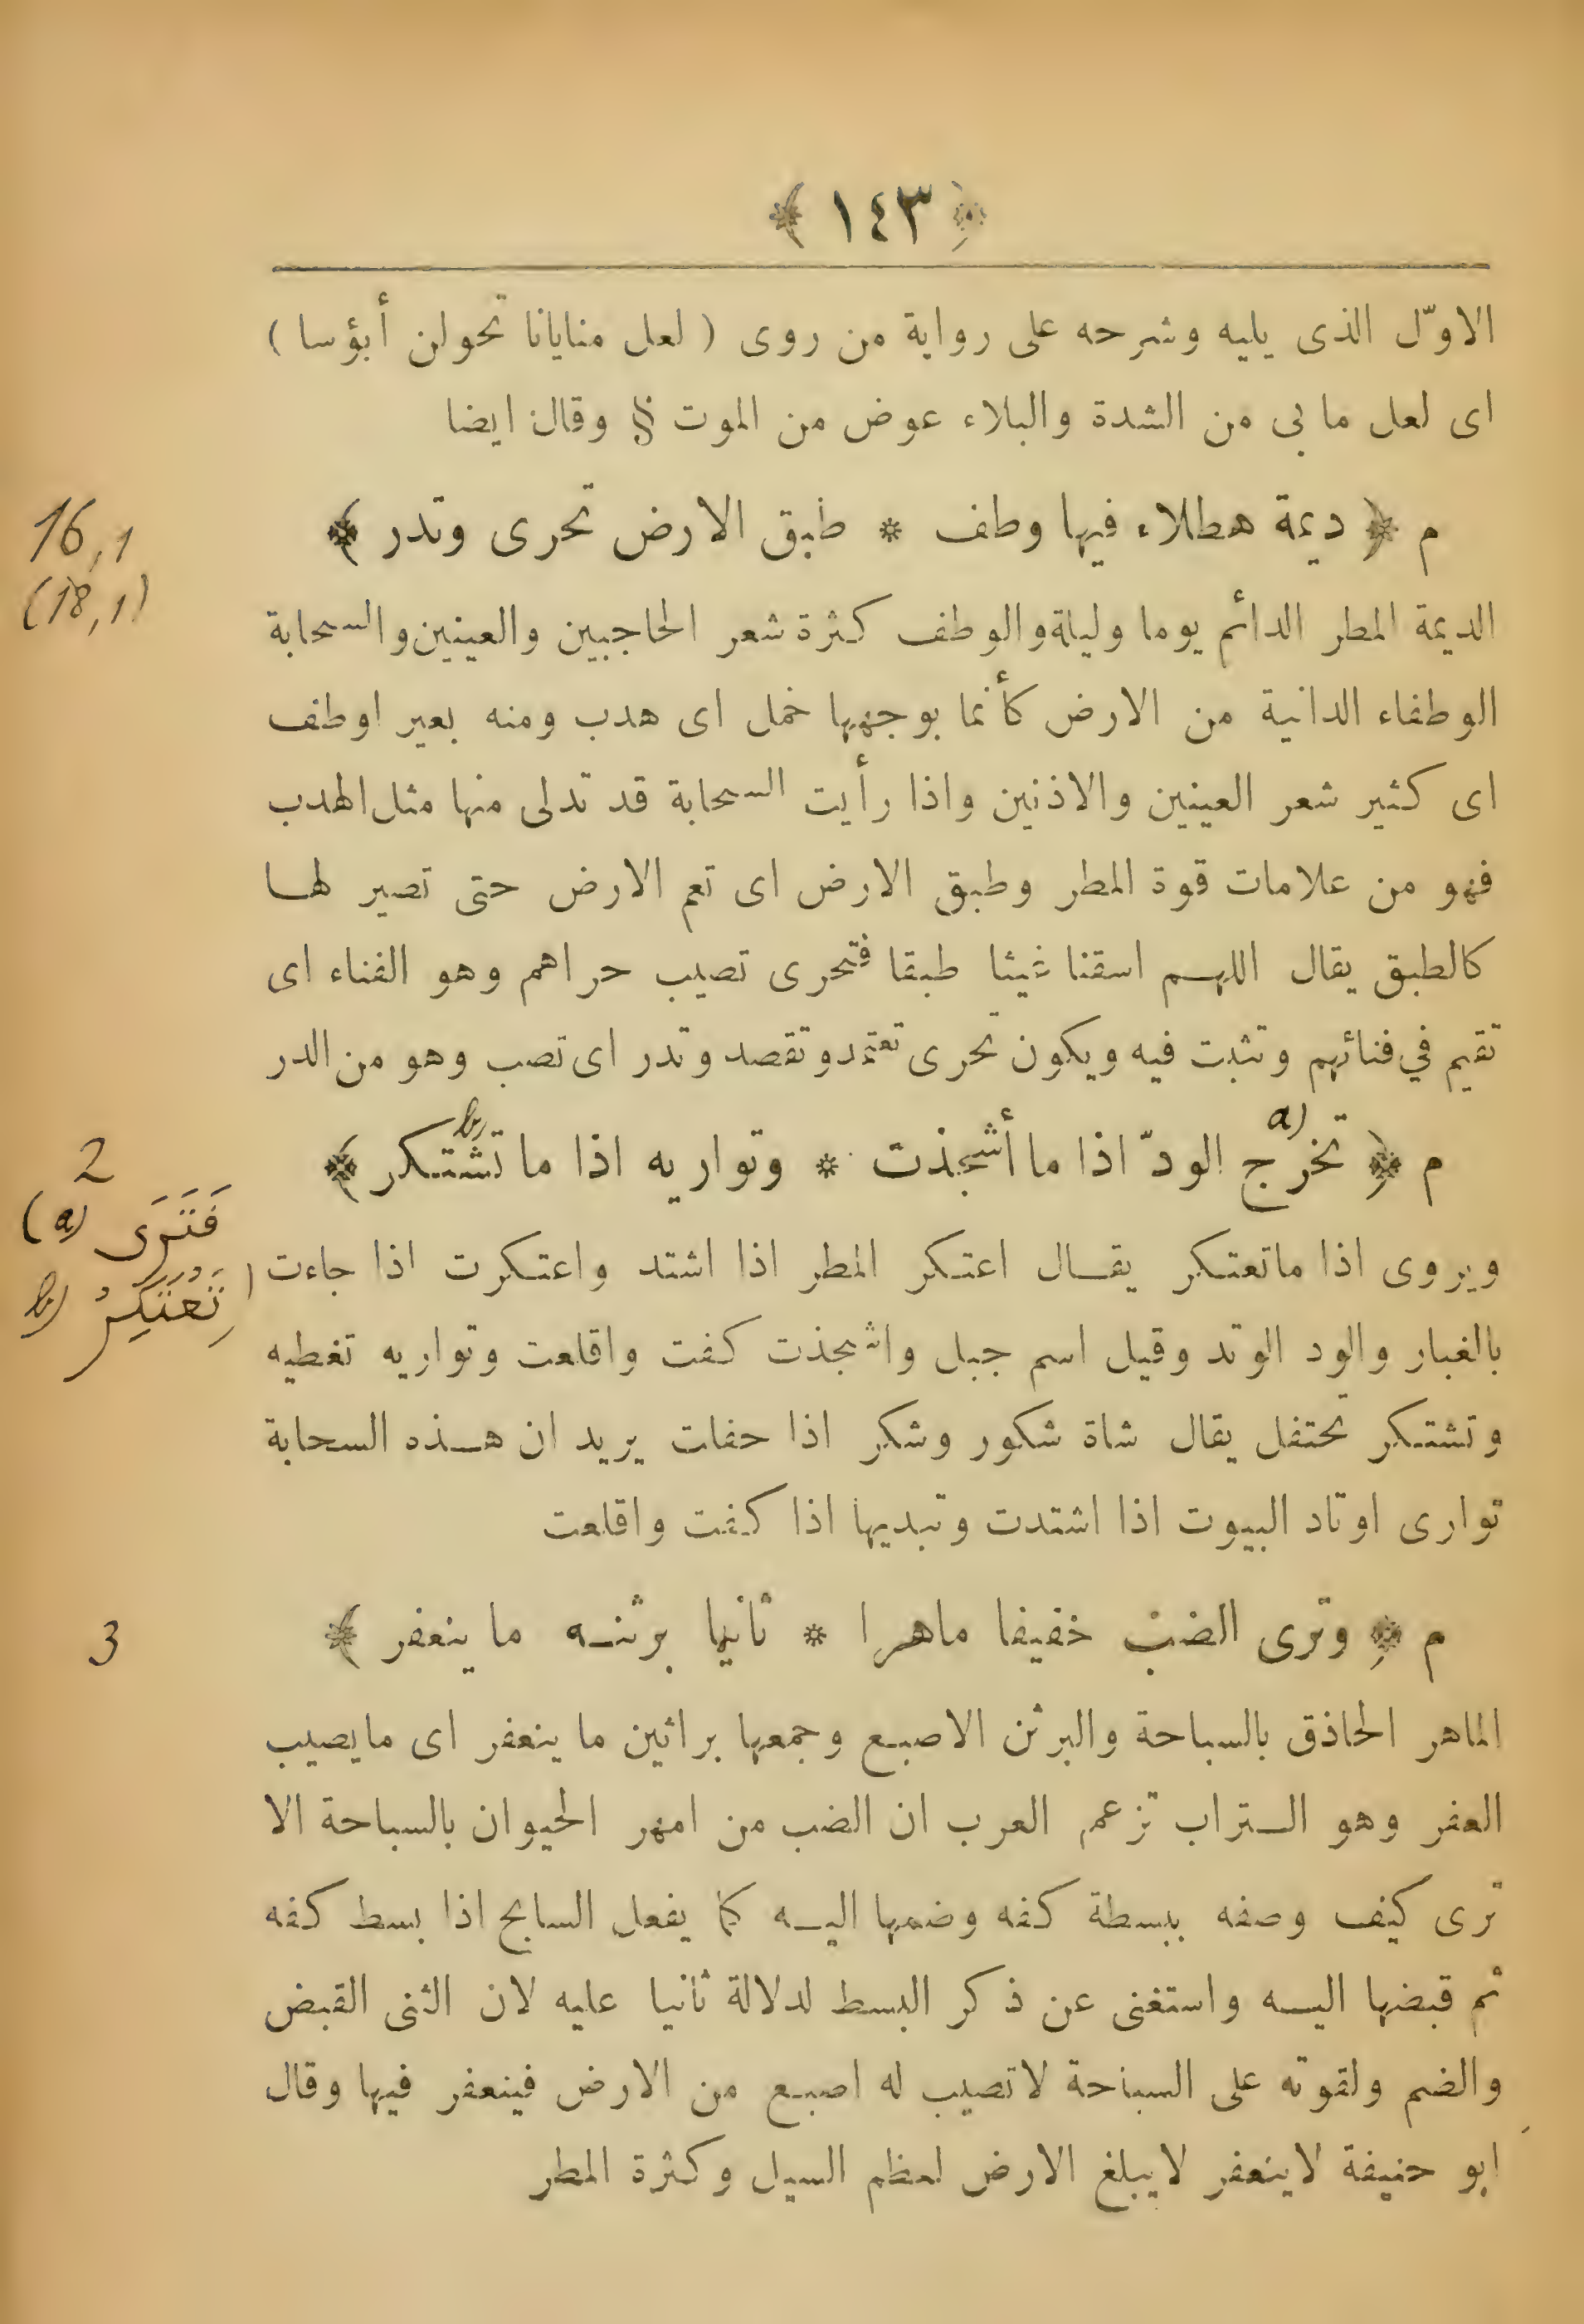 ﴿ ١٤٣ ﴾
الاوّل الذى يليه وشرحه على رواية من روى ( لعل منايانا تحولن أبؤسا )
اى لعل ما بى من الشدة والبلاء عوض من الموت § وقال ايضا
16,1
(18,1)
م ﴿ ديمة هطلاء فيها وطف * طبق الارض تحرى وتدر ﴾
الديمة المطر الدائم يوما وليلة والوطف كثرة شعر الحاجبين والعينين والسحابة
الوطفاء الدانية من الارض كأنما بوجهها خمل اى هدب ومنه بعير اوطف
اى كثير شعر العينين والاذنين واذا رأيت السحابة قد تدلى منها مثل الهدب
فهو من علامات قوة المطر وطبق الارض اى تعم الارض حتى تصير لهـا
كالطبق يقال اللهم اسقنا غيثا طبقا فتحرى تصيب حراهم وهو الفناء اى
تقيم فى فنائهم وتثبت فيه ويكون تحرى تعتمد وتقصد وتدر اى تصب وهو من الدر
2
a)
b)
م ﴿ تخرّج الودّ اذا ما أشجذت * وتواريه اذا ما تشتكر ﴾
فَتَرَى (a)
تَعْتَكِرُ b)
ويروى اذا ماتعتكر يقـال اعتكر المطر اذا اشتد واعتكرت اذا جاءت
بالغبار والود الوتد وقيل اسم جبل واشجذت كفت واقلعت وتواريه تغطيه
وتشتكر تحتفل يقال شاة شكور وشكر اذا حفلت يريد ان هـذه السحابة
توارى اوتاد البيوت اذا اشتدت وتبديها اذا كفت واقلعت
3
م ﴿ وترى الضب خفيفا ماهرا * ثانيا برثنـه ما ينعفر ﴾
الماهر الحاذق بالسباحة والبرثن الاصبع وجمعها براثين ما ينعفر اى مايصيب
العفر وهو الـتراب تزعم العرب ان الضب من امهر الحيوان بالسباحة الا
ترى كيف وصفه ببسطة كفه وضمها اليـه كما يفعل السابح اذا بسط كفه
ثم قبضها اليـه واستغنى عن ذكر البسط لدلالة ثانيا عليه لان الثنى القبض
والضم ولقوته على السباحة لاتصيب له اصبع من الارض فينعفر فيها وقال
ابو حنيفة لاينعفر لايبلغ الارض لعظم السيل وكثرة المطر